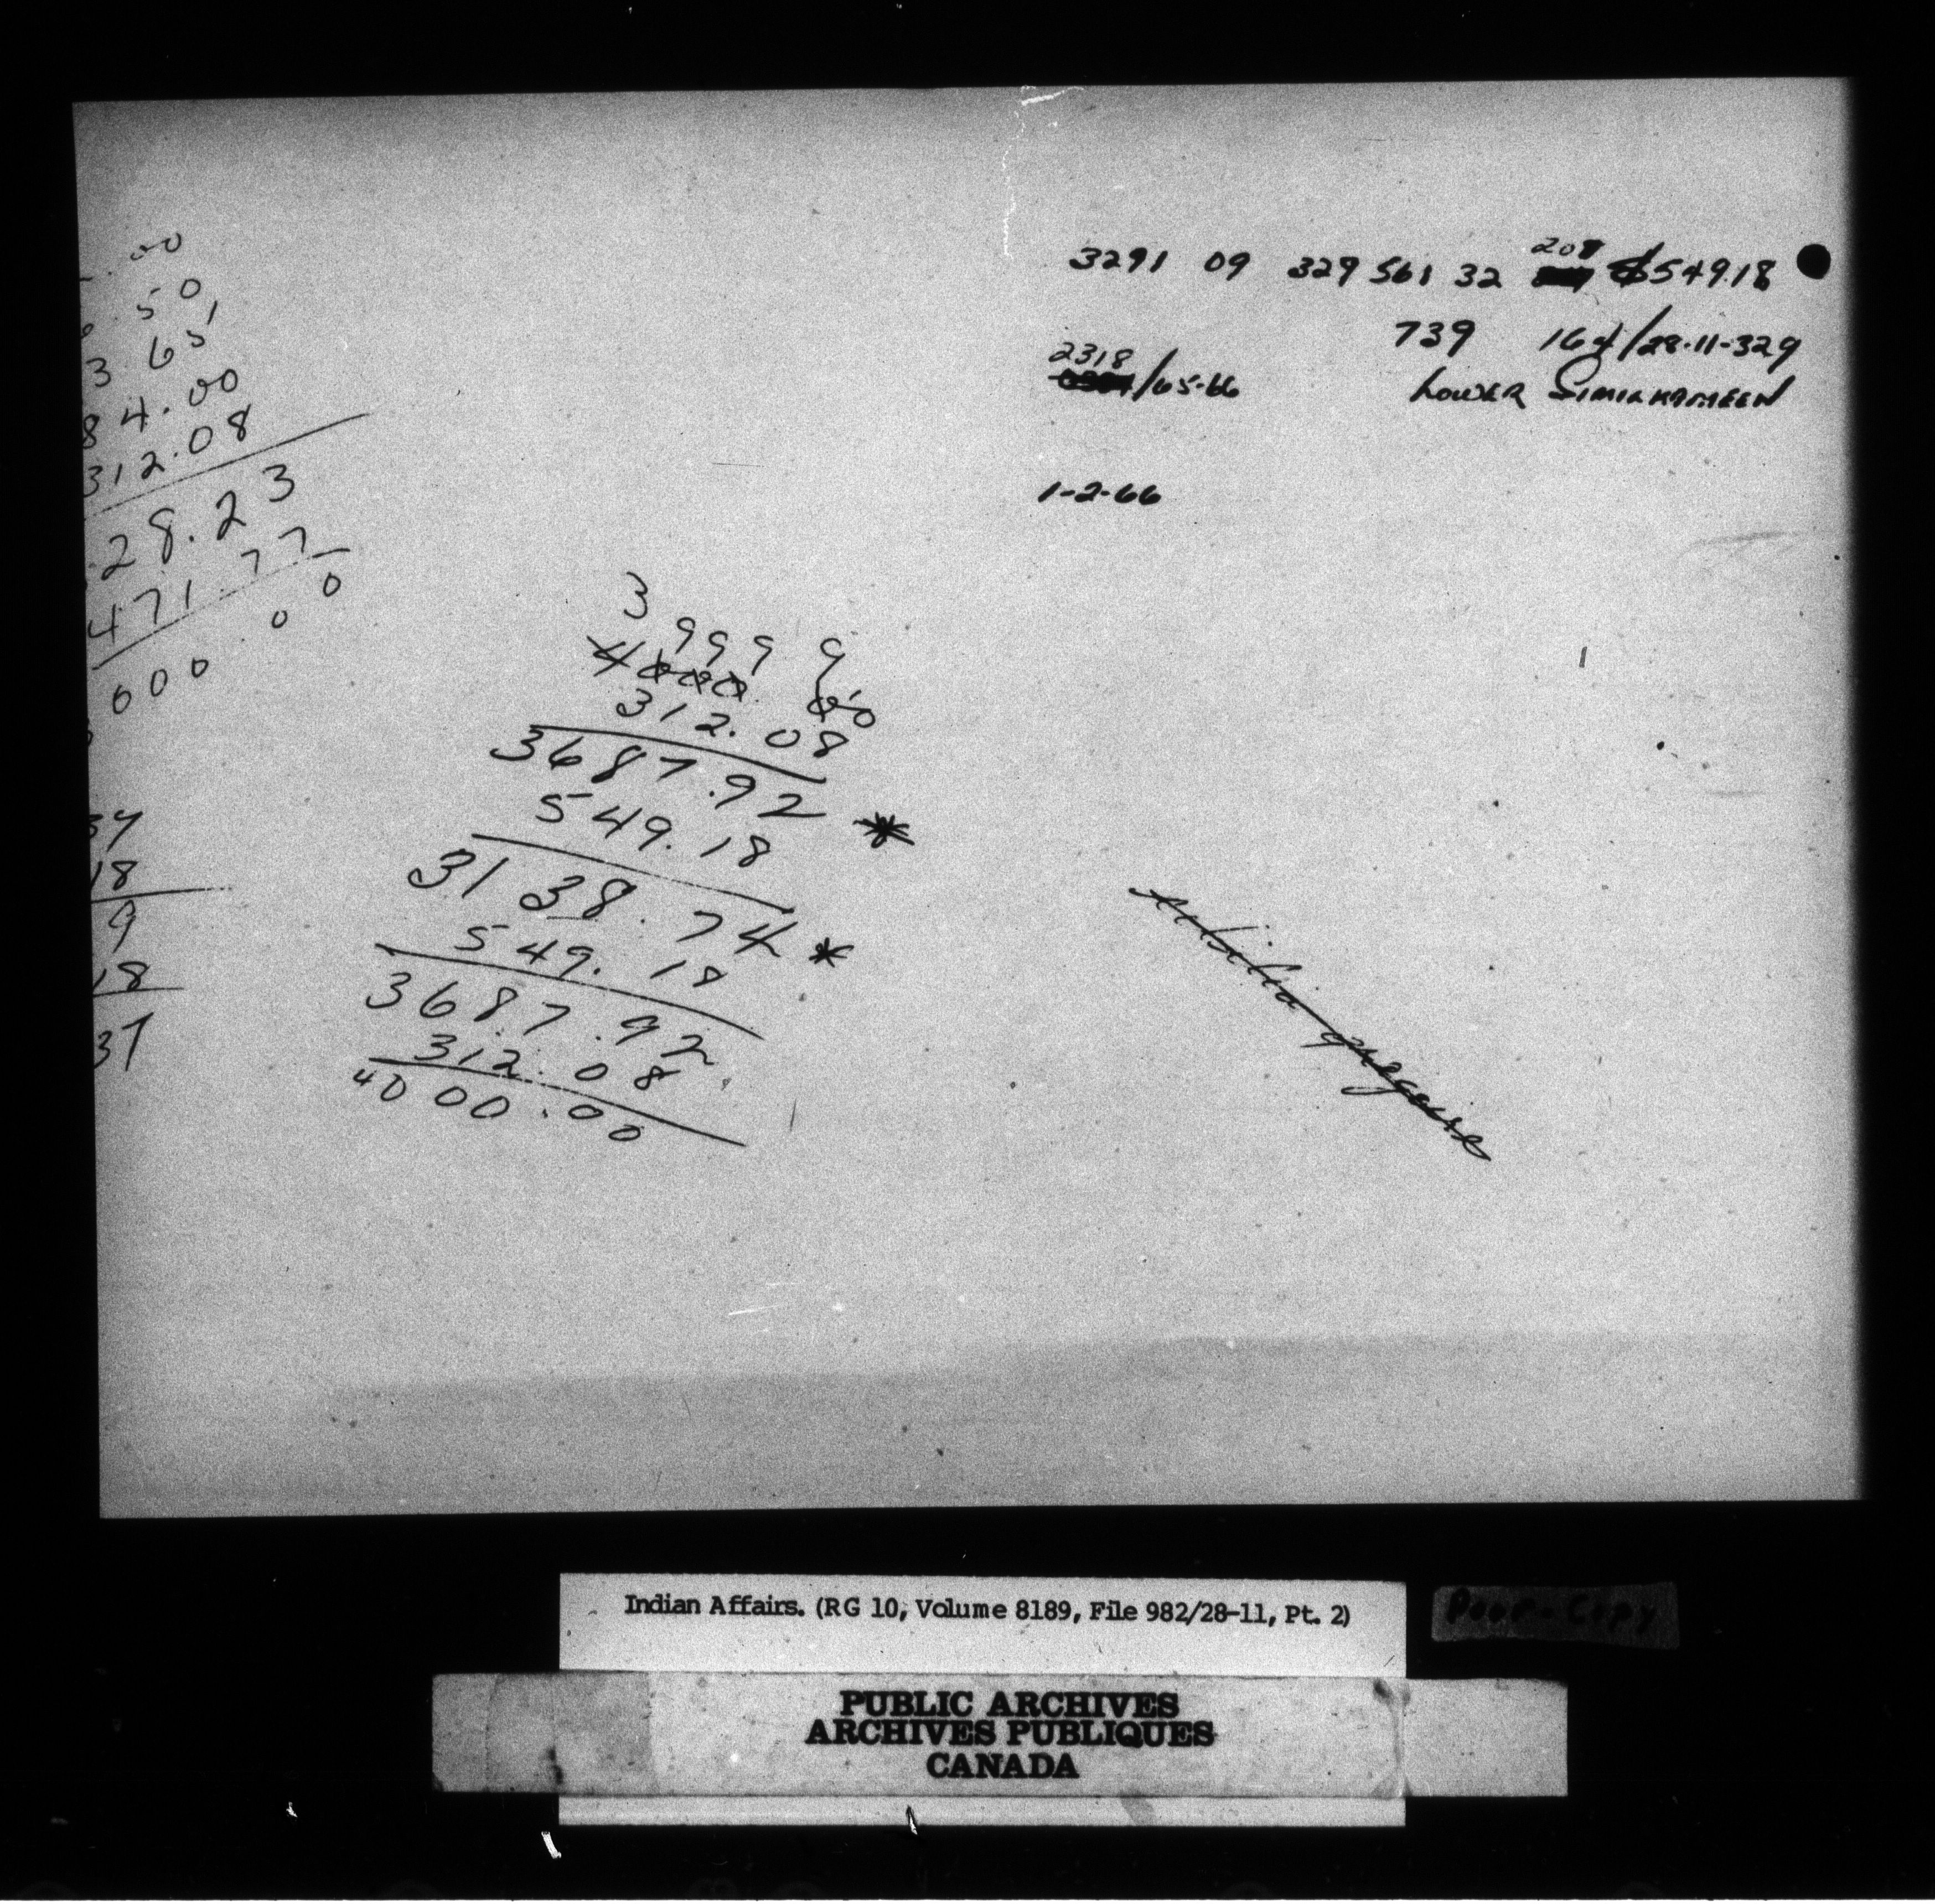 3291 09 329 561 32 208 $549.18
739 164/28-11-329
2318/65-66 LOWER SIMILKAMEEN
1-2-66
.00
.50
3.65
84.00
312.08
28.23
471.77
000.00
37
18
9
18
37
3 999 9
4000.00
312.08
3687.92 *
549.18
3138.74 *
549.18
3687.92
312.08
4000.00
Indian Affairs. (RG 10, Volume 8189, File 982/28-11, Pt. 2)
Poor-Copy
PUBLIC ARCHIVES
ARCHIVES PUBLIQUES
CANADA